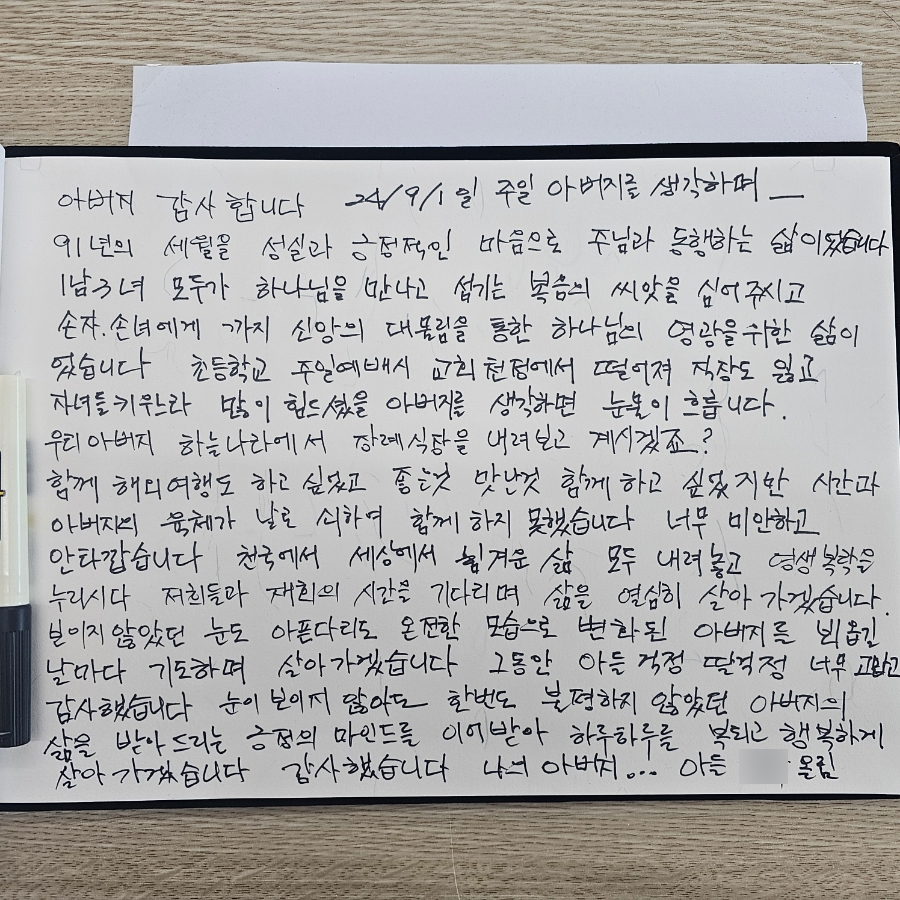 아버지 감사합니다 24/9/1일 주일 아버지를 생각하며 —
91년의 세월을 성실과 긍정적인 마음으로 주님과 동행하는 삶이었습니다
1남3녀 모두가 하나님을 만나고 섬기는 복음의 씨앗을 심어주시고
손자.손녀에게 까지 신앙의 대물림을 통한 하나님의 영광을 위한 삶이
었습니다 초등학교 주일예배시 교회천정에서 떨어져 직장도 잃고
자녀들키우느라 많이 힘드셨을 아버지를 생각하면 눈물이 흐릅니다.
우리아버지 하늘나라에서 장례식장을 내려보고 계시겠죠?
함께 해외여행도 하고 싶었고 좋은것 맛난것 함께하고 싶었지만 시간과
아버지의 육체가 날로 쇠하여 함께 하지 못했습니다 너무 미안하고
안타깝습니다 천국에서 세상에서 힘겨운 삶 모두 내려놓고 영생복락을
누리시다 저희들과 재회의 시간을 기다리며 삶을 열심히 살아 가겠습니다.
보이지않았던 눈도 아픈다리도 온전한 모습으로 변화된 아버지를 뵈옵길
날마다 기도하며 살아가겠습니다 그동안 아들걱정 딸걱정 너무 고맙고
감사했습니다 눈이보이지 않아도 한번도 불평하지 않았던 아버지의
삶을 받아드리는 긍정의 마인드를 이어받아 하루하루를 복되고 행복하게
살아 가겠습니다 감사했습니다 나의 아버지... 아들 올림